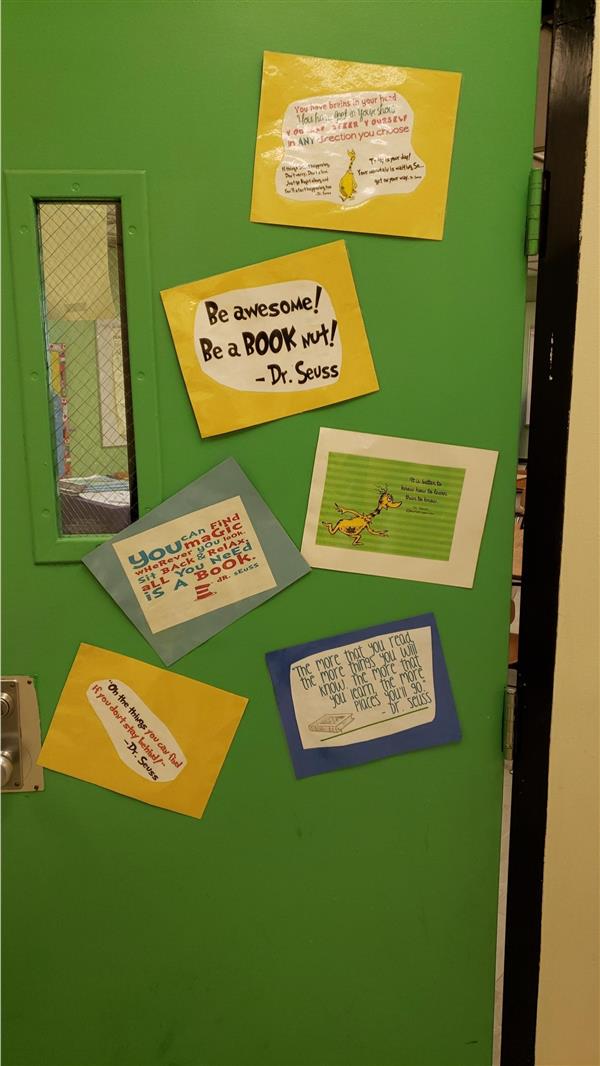 You have brains in your head
You have feet in your shoes
YOU CAN STEER YOURSELF
in ANY direction you choose
If things start happening,
Don't worry. Don't stew.
Just go Right along and
You'll start happening too
- Dr. Seuss
Today is your day!
Your mountain is waiting, So...
get on your way.
Be awesome!
Be a BOOK nut!
- Dr. Seuss
It is better to
know how to learn
than to know.
YOU CAN FIND
MAGIC
WHEREVER YOU LOOK.
SIT BACK & RELAX,
ALL YOU NEED
IS A BOOK.
- DR. SEUSS
"The more that you read,
the more things you will
know. The more that
you learn, the more
places you'll go."
- Dr. Seuss
"Oh the things you can find
If you don't stay behind!"
-Dr. Seuss